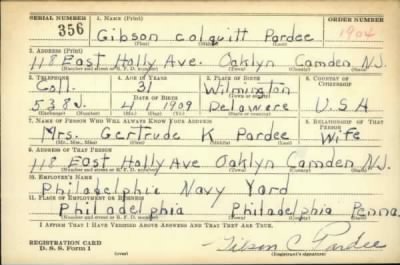 SERIAL NUMBER 1. NAME (Print) ORDER NUMBER
356 Gibson Colquitt Pardee 1904
(First) (Middle) (Last)
2. ADDRESS (Print)
118 East Holly Ave. Oaklyn Camden N.J.
(Number and street or R. F. D. number) (Town) (County) (State)
3. TELEPHONE 4. AGE IN YEARS 5. PLACE OF BIRTH 6. COUNTRY OF CITIZENSHIP
Coll. 31 Wilmington
DATE OF BIRTH
538J. 4 1 1909 Delaware U.S.A
(Mo.) (Day) (Yr.)
7. NAME OF PERSON WHO WILL ALWAYS KNOW YOUR ADDRESS 8. RELATIONSHIP OF THAT PERSON
Mrs. Gertrude K Pardee Wife
(Mr., Mrs., Miss) (First) (Middle) (Last)
9. ADDRESS OF THAT PERSON
118 East Holly Ave Oaklyn Camden N.J.
(Number and street or R. F. D. number) (Town) (County) (State)
10. EMPLOYER'S NAME
Philadelphia Navy Yard
11. PLACE OF EMPLOYMENT OR BUSINESS
Philadelphia Philadelphia Penna.
(Number and street or R. F. D. number) (Town) (County) (State)
I AFFIRM THAT I HAVE VERIFIED ABOVE ANSWERS AND THAT THEY ARE TRUE.
REGISTRATION CARD
D. S. S. Form 1 (over) (Registrant's signature)